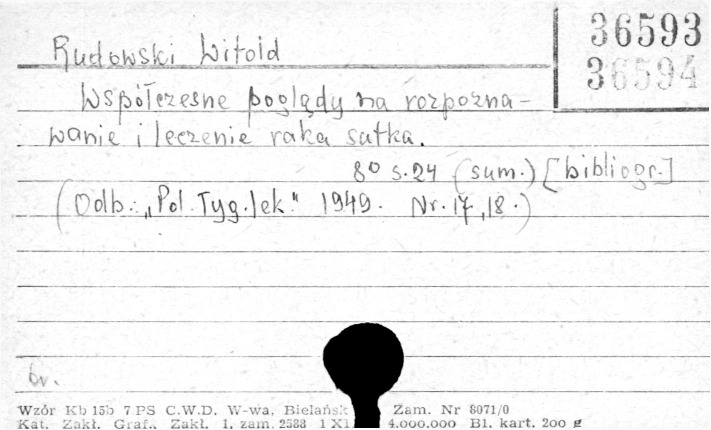 36593
36594
Rudowski Witold
Współczesne poglądy na rozpozna-
wanie i leczenie raka sutka.
8° s.24 (sum.) [bibliogr.]
(Odb.: „Pol. Tyg. lek." 1949. Nr. 17, 18.)
br.
Wzór Kb 15b 7 PS C.W.D. W-wa, Bielańsk Zam. Nr 8071/0
Kat. Zakł. Graf., Zakł. 1, zam. 2588 1 XI 4.000.000 B1. kart. 200 g